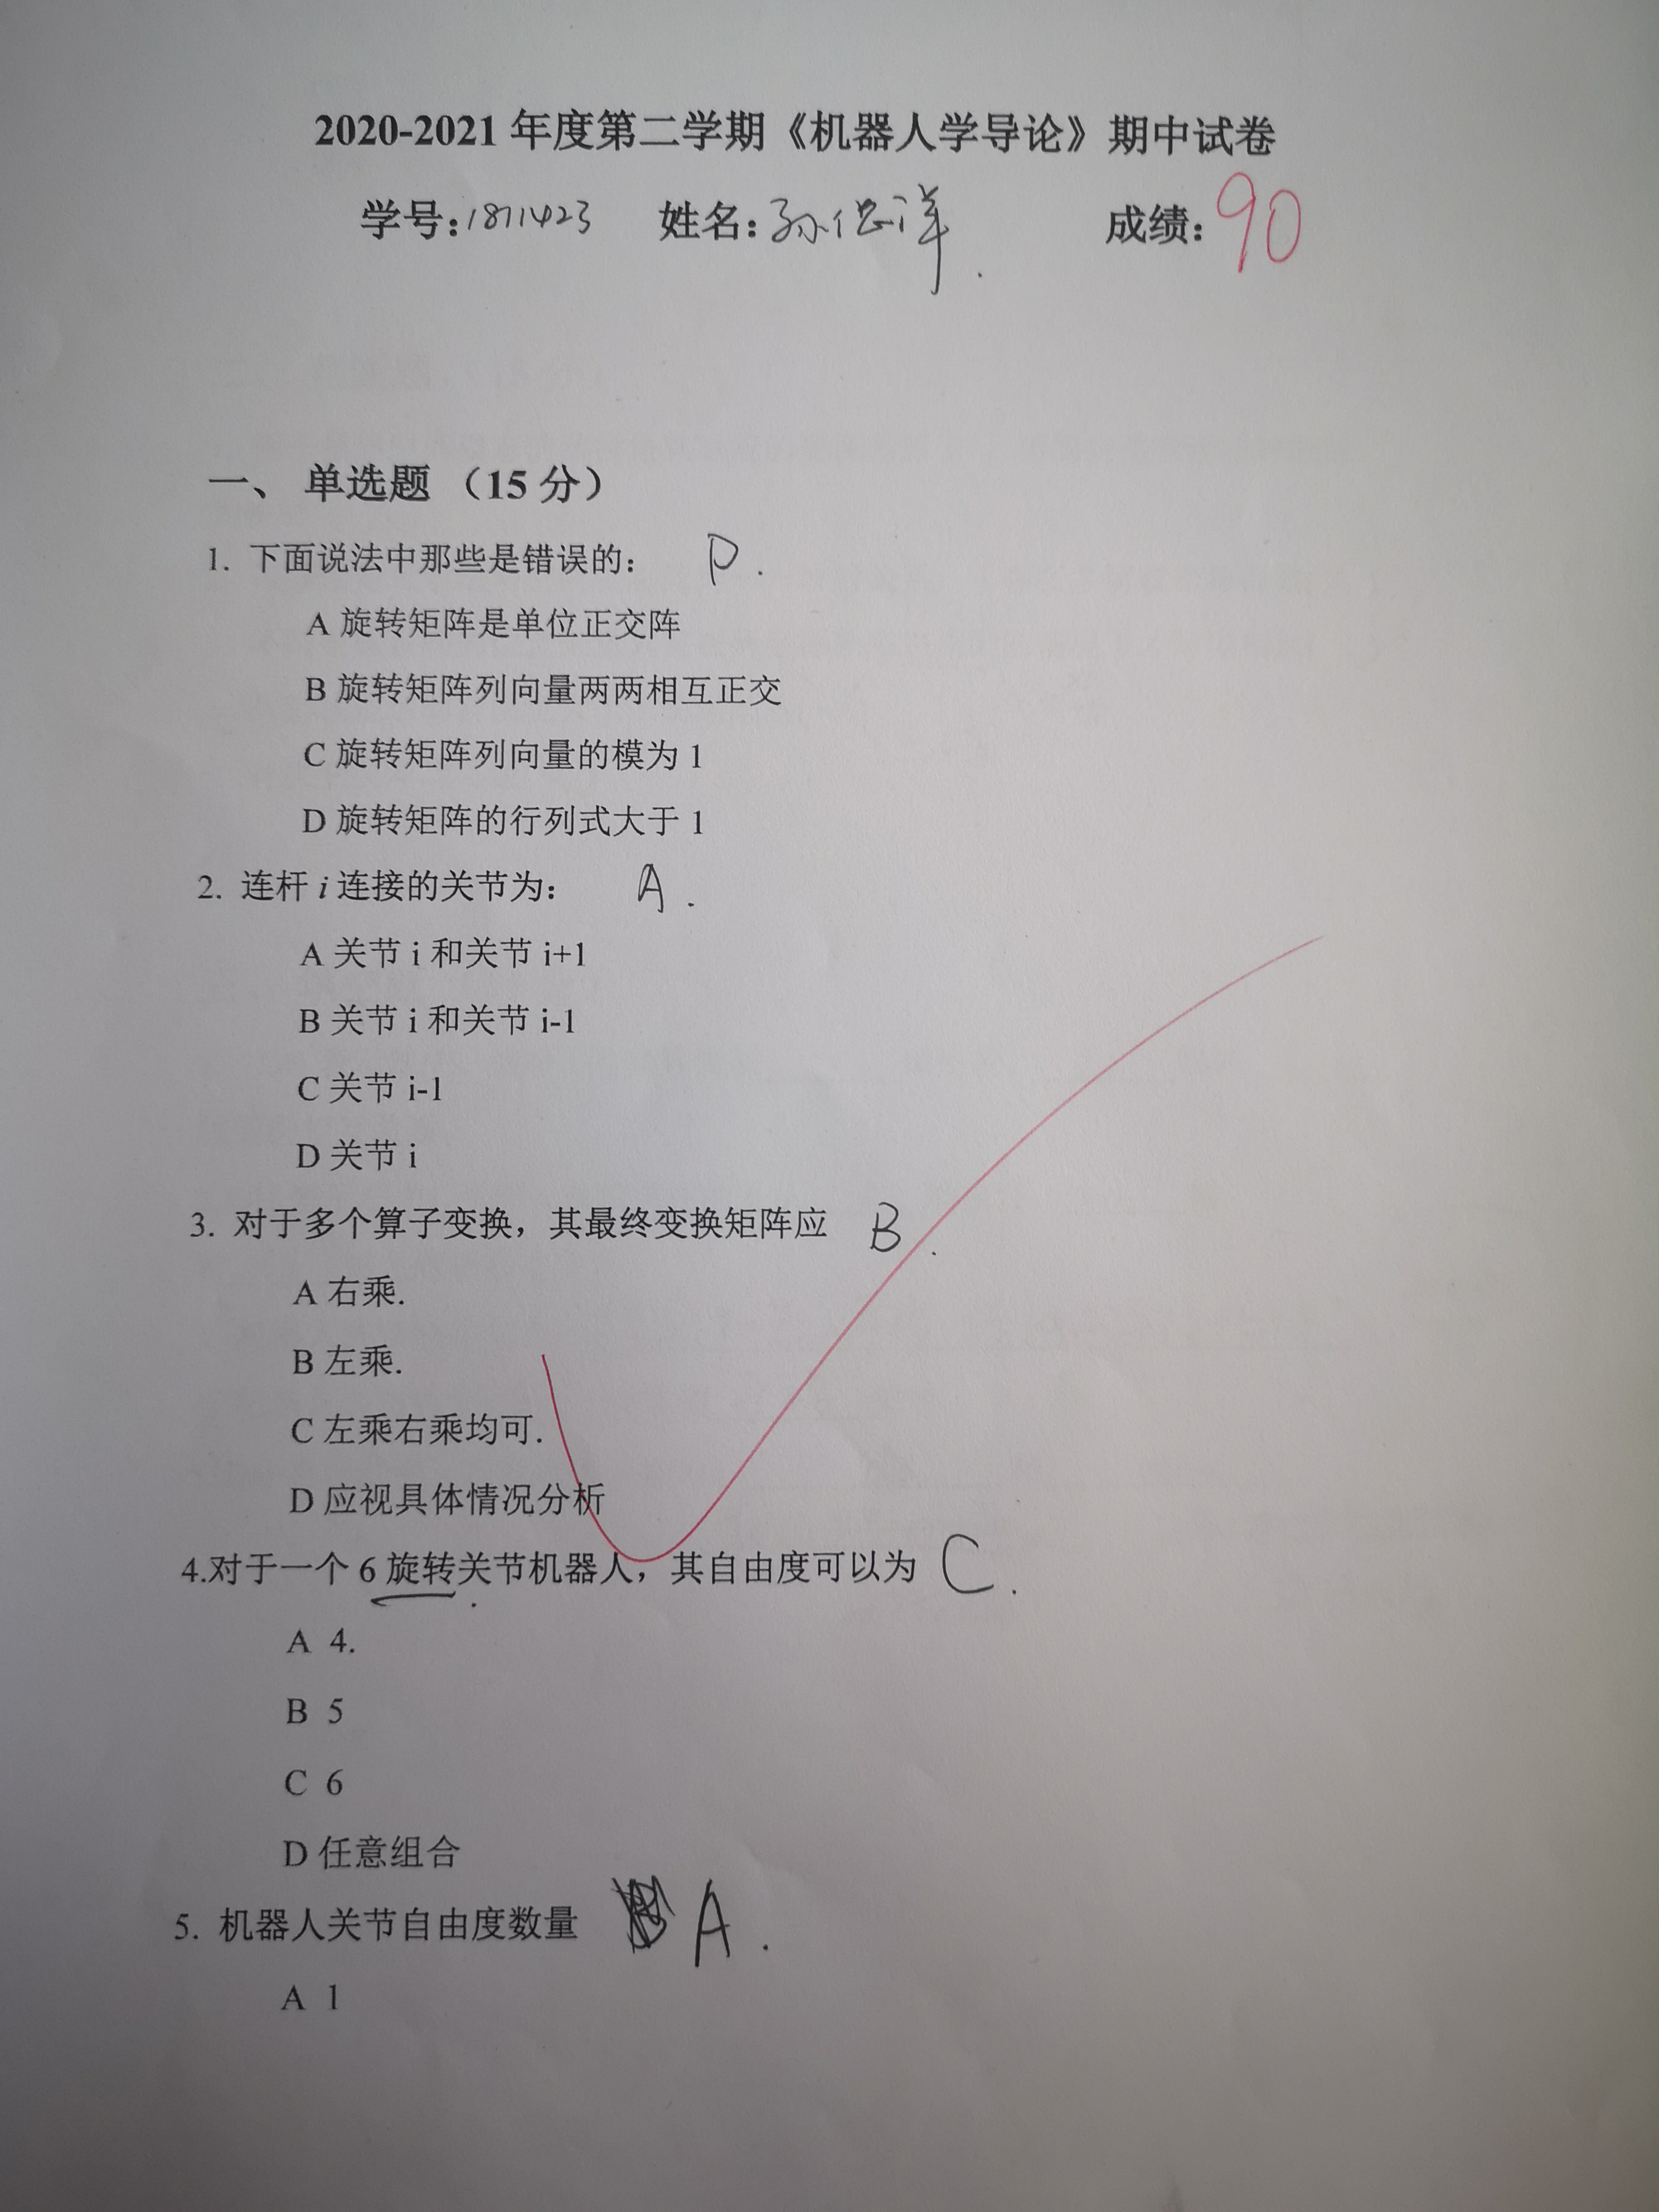 2020-2021 年度第二学期《机器人学导论》期中试卷
学号: 1811423 姓名: 孙 洋 成绩: 90
一、 单选题 （15 分）
1. 下面说法中那些是错误的: D.
A 旋转矩阵是单位正交阵
B 旋转矩阵列向量两两相互正交
C 旋转矩阵列向量的模为 1
D 旋转矩阵的行列式大于 1
2. 连杆 i 连接的关节为: A.
A 关节 i 和关节 i+1
B 关节 i 和关节 i-1
C 关节 i-1
D 关节 i
3. 对于多个算子变换，其最终变换矩阵应 B.
A 右乘.
B 左乘.
C 左乘右乘均可.
D 应视具体情况分析
4.对于一个 6 旋转关节机器人，其自由度可以为 C.
A 4.
B 5
C 6
D 任意组合
5. 机器人关节自由度数量 A.
A 1